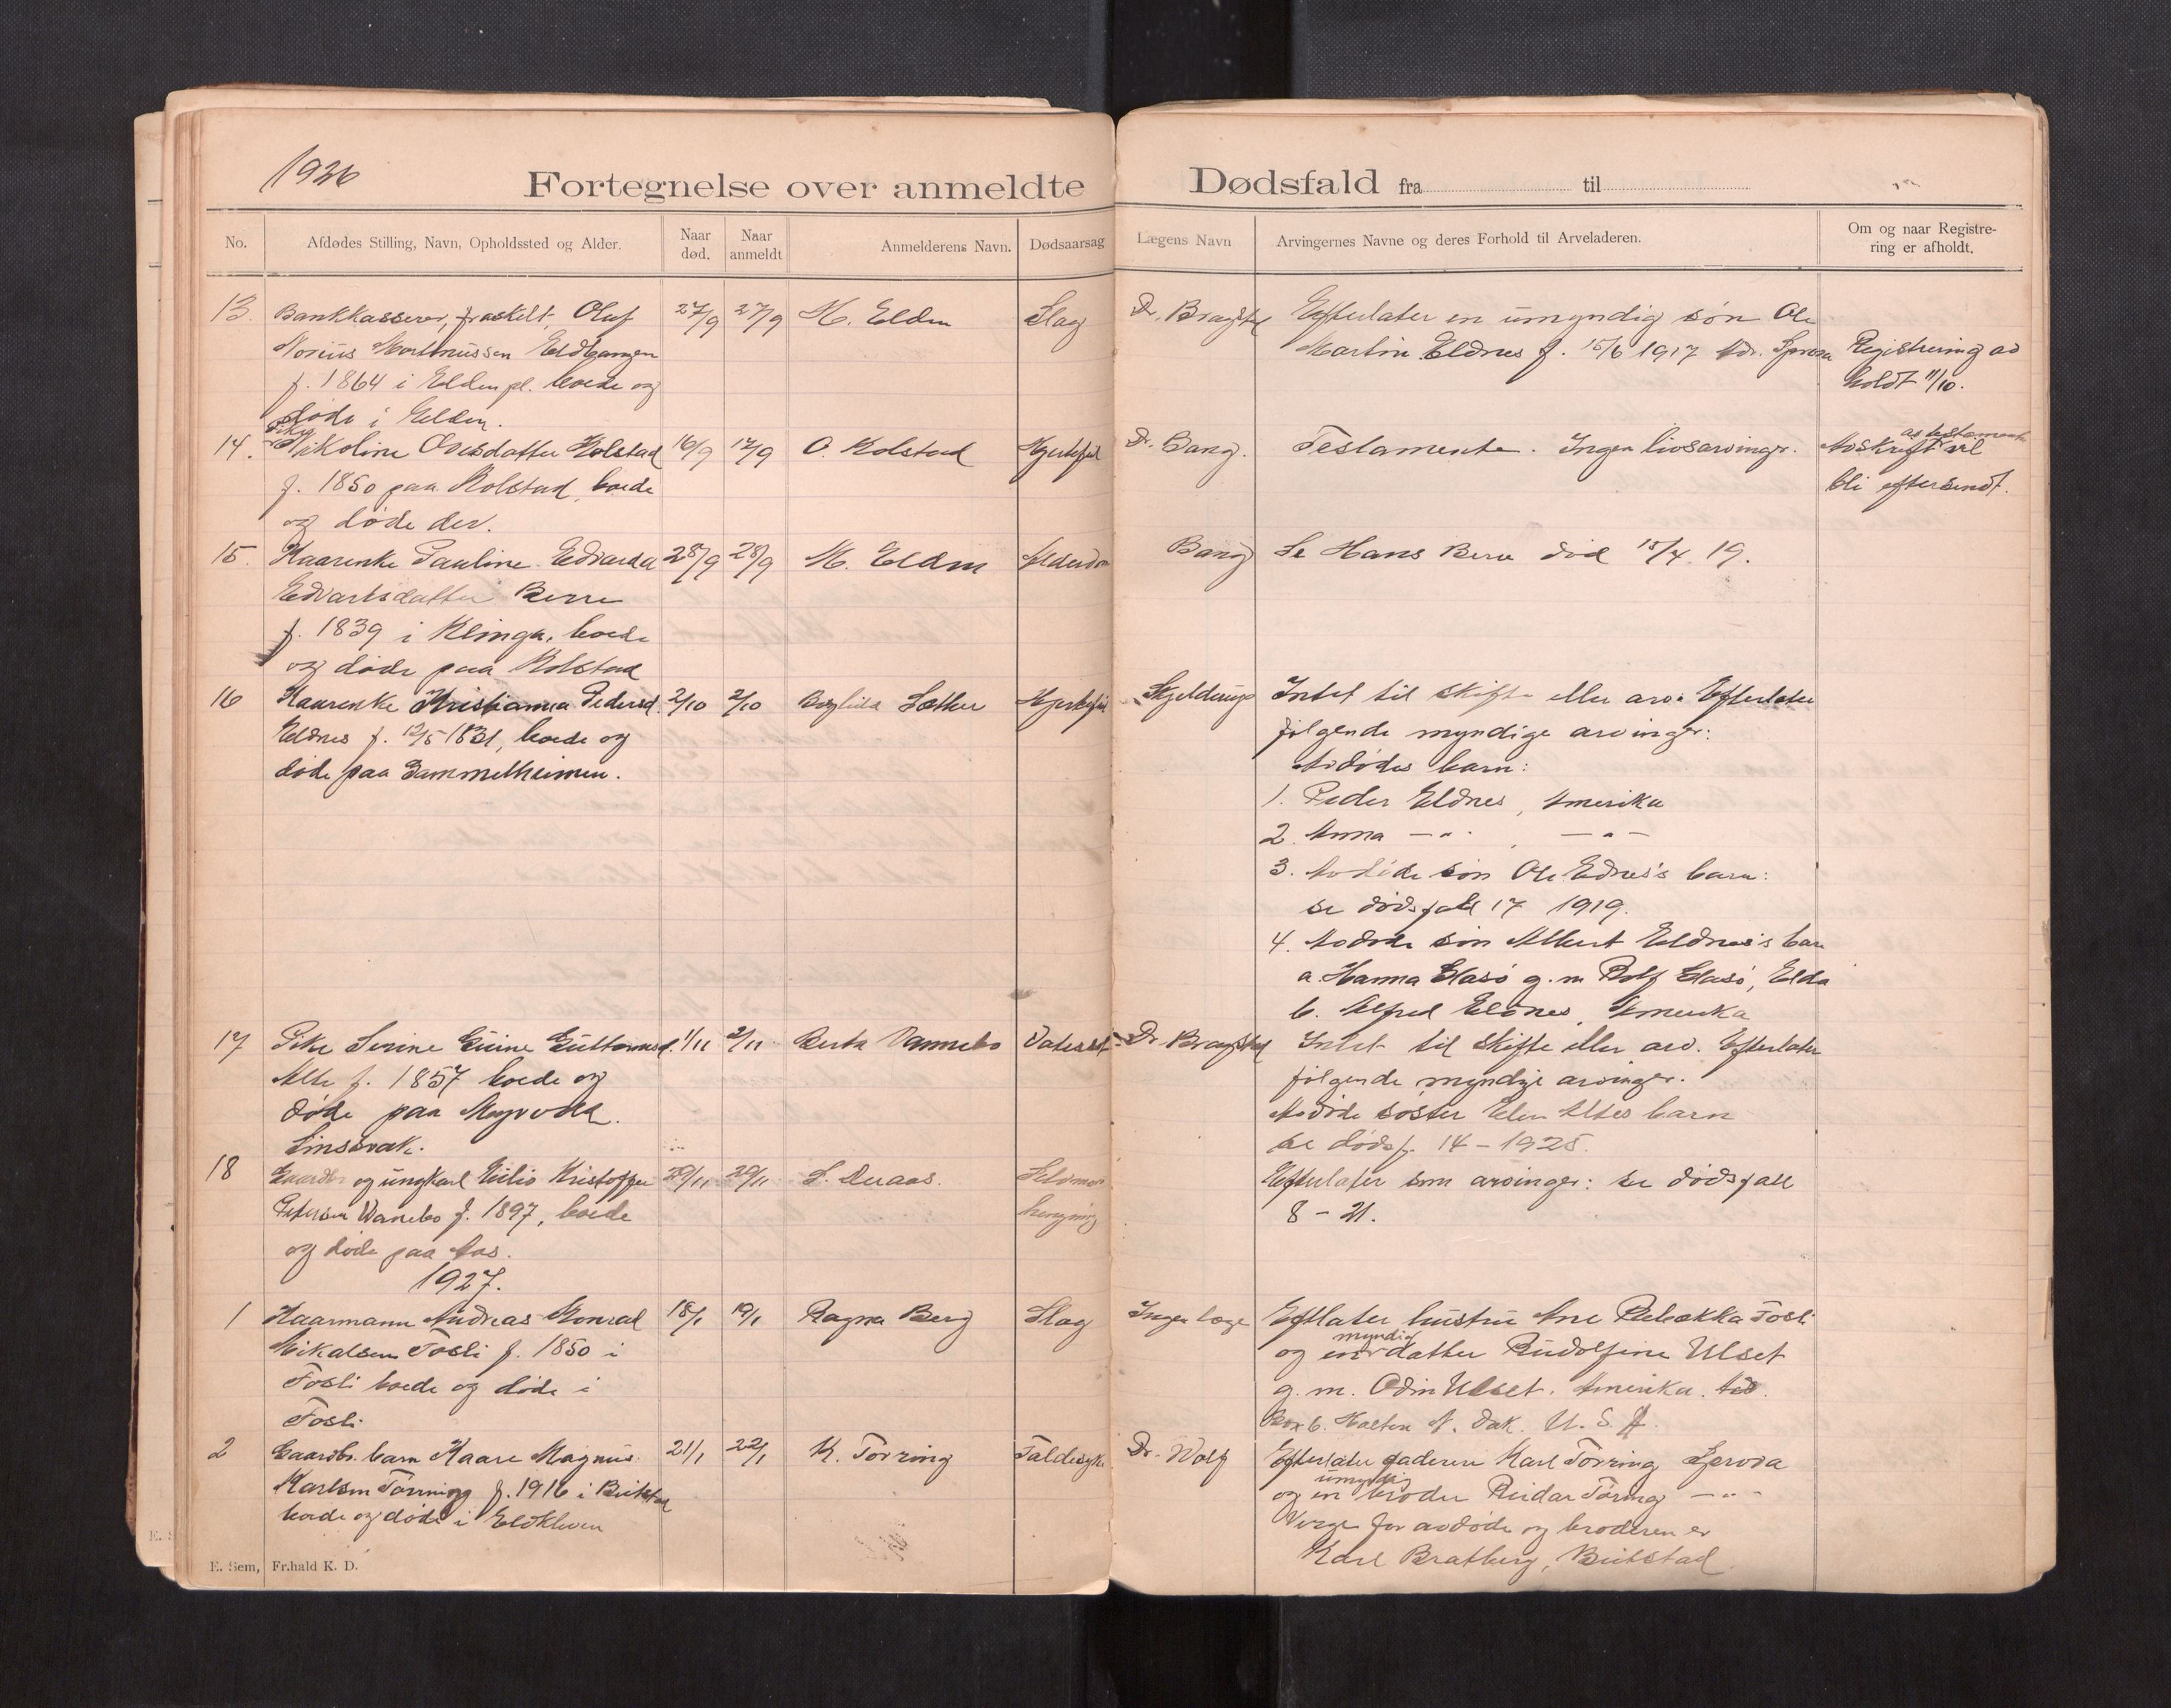 1926
Fortegnelse over anmeldte Dødsfald fra til
No.
Afdødes Stilling, Navn, Opholdssted og Alder.
Naar død.
Naar anmeldt
Anmelderens Navn.
Dødsaarsag
Lægens Navn
Arvingernes Navne og deres Forhold til Arveladeren.
Om og naar Registre-
ring er afholdt.
13. Bankkasserer, fraskilt, Oluf 27/9 27/9 M. Elden Slag Dr. Bragstad Efterlater en umyndig søn Ole
Martinussen
Martin Eldnes f. 15/6 1917 Adr. Sprova Registrering av
f. 1864 i Elden pl. boede og
holdt 11/10.
døde i Elden.
Pike
av testamente
14. Nikoline Olesdatter Kolstad 16/9 17/9 O. Kolstad Hjertefeil Dr. Bang. Testamente. Ingen livsarvinger. Avskrift vil
f. 1850 paa Kolstad, boede
bli eftersendt.
og døde der.
15. Kaarenke Pauline Edvarda 28/9 28/9 M. Elden Alderdom Bang Se Hans Berre død 15/4 19.
Edvartsdatter Berre
f. 1839 i Klinga, boede
og døde paa Kolstad
16 Kaarenke Kristianna Pedersd. 2/10 2/10 Sæther Hjertefeil Skjelderup Intet til skifte eller arv. Efterlater
Eldnes f. 12/5 1831, boede og
følgende myndige arvinger:
døde paa Gammelheimen.
Avdødes barn:
1. Peder Eldnes, Amerika
2. Anna — " — — " —
3. Avdøde søn Ole Ednes's barn:
se dødsfald 17 1919.
4. Avdøde søn Albert Eldnes's barn
a. Hanna Elasø g. m Rolf Elasø, Elda
b. Alfred Eldnes, Amerika
17 Pike Serine Guttormsd. 1/11 2/11 Berta Vannebo Vatersot Dr. Bragstad Intet til skifte eller arv. Efterlater
Alte f. 1857 boede og
følgende myndige arvinger.
døde paa Myrvold.
Avdøde søster Elen Altes barn
Sinssvak.
se dødsf. 14 – 1925.
18 Gaardbr og ungkarl Eilif Kristoffer 29/11 29/11 S. Duaas. Selvmord Efterlater som arvinger: se dødsfall
Petersen Wanebo f. 1897, boede hengning
8 – 21.
og døde paa Aas.
1927.
1 Kaarmann Andreas Konrad 18/1 19/1 Ragna Berg Slag Ingen læge Eftlater hustru Ane Rebekka Fosli
Mikalsen Fosli f. 1850 i
myndig
og en datter Rudolfine Ulset
Fosli boede og døde i
g. m. Odin Ulset. Amerika. Adr.
Fosli
Box 6. N. Dak. U. S. A.
2 Gaardbr. barn Kaare Magnus 21/1 22/1 K. Tørring Faldesyke Dr. Wolf Efterlater faderen Karl Tørring Sprova
Karlsen Tørring f. 1916 i Beitstad
umyndig
og en broder Reidar Tøring — " —
boede og døde i Eldkleven
Verge for avdøde og broderen er
Karl Bratberg, Beitstad
E. Sem, Fr.hald K. D.